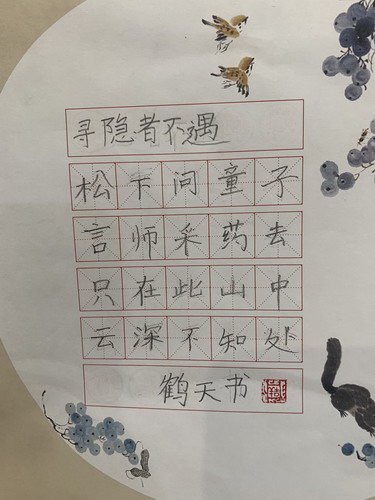 寻隐者不遇
松下问童子
言师采药去
只在此山中
云深不知处
鹤天书